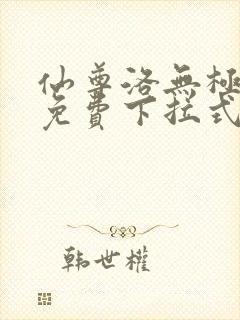 仙尊洛無極
免費下拉式
韩世權